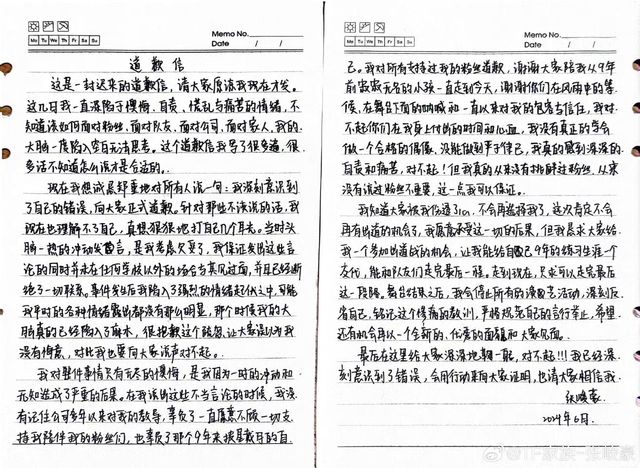 Memo No.
Mo Tu We Th Fr Sa Su
Date / /
道歉信
这是一封迟来的道歉信，请大家原谅我现在才发。
这几日我一直深陷于懊悔、自责、慌乱与痛苦的情绪，不
知道该如何面对粉丝，面对队友，面对公司，面对家人，我的
大脑一度陷入空白无法思考。这个道歉信我写了很多遍，很
多话不知道怎么说才是合适的。
现在我想诚恳郑重地对所有人说一句：我深刻意识到
了自己的错误，向大家正式道歉。针对那些不该说的话，我
现在也理解不了自己，真想狠狠地打自己几个耳光。当时头
脑一热的冲动发言，是我考虑欠妥了，我保证发出这些言
论的同时并未在任何学校以外的场合与其见过面，并且已经断
绝了一切联系。事件发生后我陷入了强烈的情绪起伏之中，可能
我平时的各种情绪露出都没有那么明显，那个时候我的大
脑真的已经陷入了麻木，很抱歉这个疏忽让大家误以为我
没有悔意，对此我也要向大家说声对不起。
我对整件事情只有无尽的懊悔，是我因为一时的冲动和
无知造成了严重的后果。在我说出这些不当言论的时候，我没
有记住公司多年以来对我的教导，辜负了一直愿意不顾一切支
持我陪伴我的粉丝们，也辜负了那个9年来披星戴月的自
Memo No.
Mo Tu We Th Fr Sa Su
Date / /
己。我对所有支持过我的粉丝道歉，谢谢大家陪我从9年
前
的小孩一直走到今天，谢谢你们在风雨中的等
候，在舞台下面的呐喊和一直以来对我的包容与信任，我对
不起你们在我身上付出的时间和心血，我没有真正的学会
做一个合格的偶像，没能做到严于律己，我真的感到深深的
自责和痛苦，对不起！但我真的从来没有排解过粉丝，从来
没有说过粉丝不重要，这一点我可以保证。
我知道大家被我伤透了心，不会再选择我了，这次肯定不会
再有出道的机会了，我愿意承受这一切的后果，但我恳求大家给
我一个参加出道战的机会，让我能给自己9年的练习生涯一个
交代，能和队友们走完最后一程。走到现在，只求可以走完最后
这一段路。舞台结束之后，我会停止所有的演艺活动，深刻反
省自己，铭记这个惨痛的教训，严格规范自己的言行举止，希望
还有机会再以一个全新的、优秀的面貌和大家见面。
最后在这里给大家深深地鞠一躬，对不起！！！我已经深
刻意识到了错误，会用行动来向大家证明，也请大家相信我。
张峻豪
2024年6月.
@TF家族-张峻豪